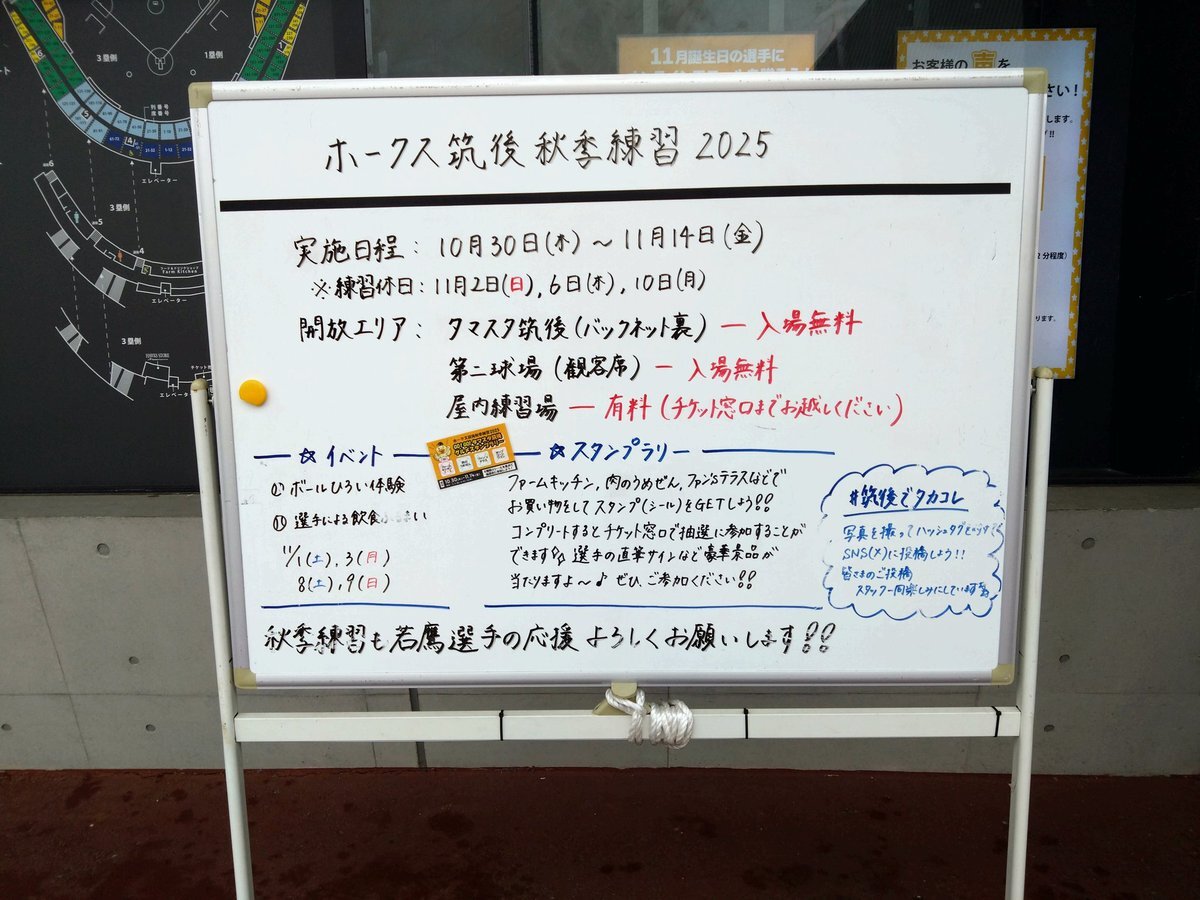 3塁側
1塁側
列番号
席番号
エレベーター
3塁側
エレベーター
3塁側
11月誕生日の選手に
お客様の声を
さい!
します。
2分程度)
ります。
ホークス筑後秋季練習 2025
実施日程: 10月30日(木)~11月14日(金)
※練習休日: 11月2日(日), 6日(木), 10日(月)
開放エリア: タマスタ筑後(バックネット裏) ― 入場無料
第二球場(観客席) ― 入場無料
屋内練習場 ― 有料(チケット窓口までお越しください)
☆イベント
ボールひろい体験
選手による飲食ふるまい
11/1(土), 3(月)
8(土), 9(日)
☆スタンプラリー
ファームキッチン, 肉のうめぜん, ファンズテラスなどで
お買い物をしてスタンプ(シール)をGETしよう!!
コンプリートするとチケット窓口で抽選に参加することが
できます!! 選手の直筆サインなど豪華景品が
当たりますよ~♪ ぜひ、ご参加ください!!
#筑後でタカコレ
写真を撮ってハッシュタグを
SNS(X)に投稿しよう!!
皆さまのご投稿
スタッフ一同楽しみにしています
秋季練習も若鷹選手の応援よろしくお願いします!!